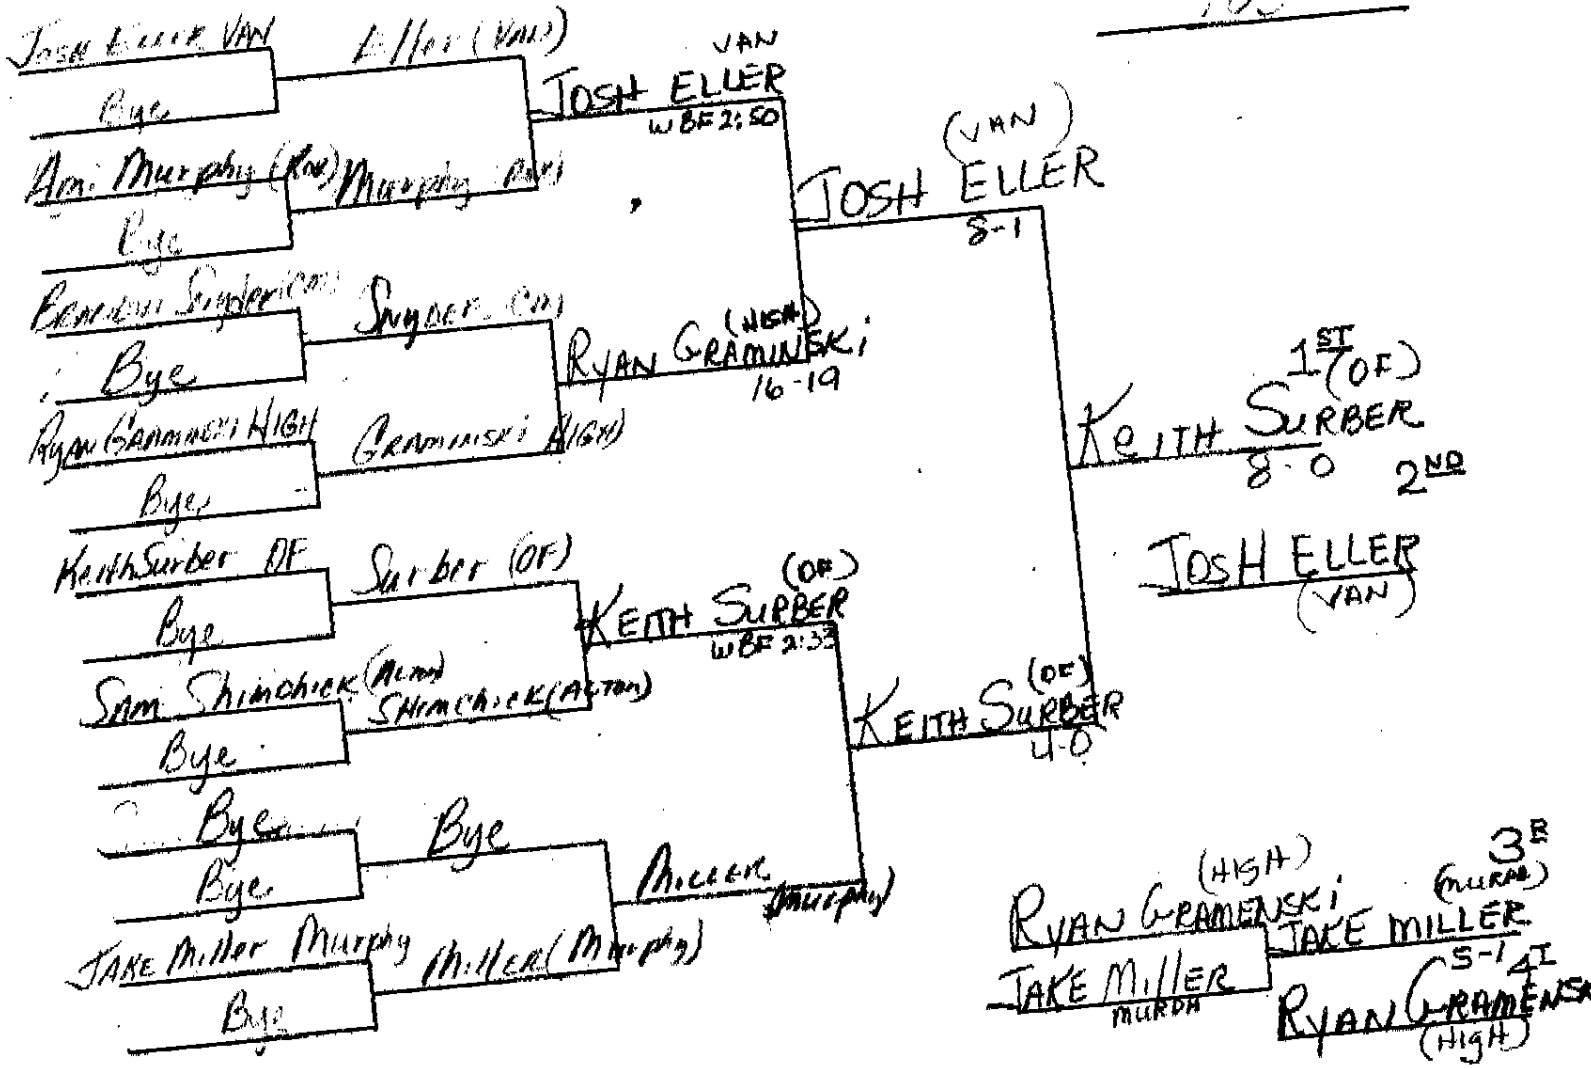 103
Josh Eller VAN
Bye
Ami Murphy (Rox)
Bye
Snyder (CM)
Bye
Ryan Graminski HIGH
Bye
Keith Surber OF
Bye
Sam Shimchick (Alton)
Bye
Bye
Bye
JAKE Miller Murphy
Bye
Eller (VAN)
Murphy
SNYDER (CM)
GRAMINSKI HIGH)
Surber (OF)
SHIMCHICK (ALTON)
Bye
Miller (Murphy)
VAN
JOSH ELLER
WBF 2:50
(HIGH)
RYAN GRAMINSKI
16-19
(OF)
KEITH SURBER
WBF 2:33
MILLER
(Murphy)
(VAN)
JOSH ELLER
8-1
(OF)
KEITH SURBER
4-0
1ST (OF)
KEITH SURBER
8-0
2ND
JOSH ELLER
(VAN)
(HIGH)
RYAN GRAMENSKI
JAKE MILLER
MURPH
3R
(MURPH)
JAKE MILLER
5-1
RYAN GRAMENSK
(HIGH)